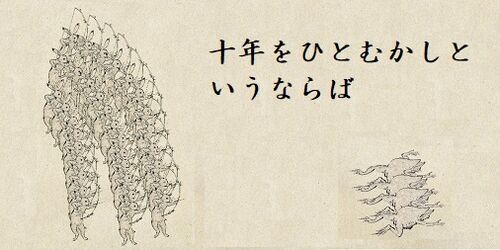 十年をひとむかしと
いうならば